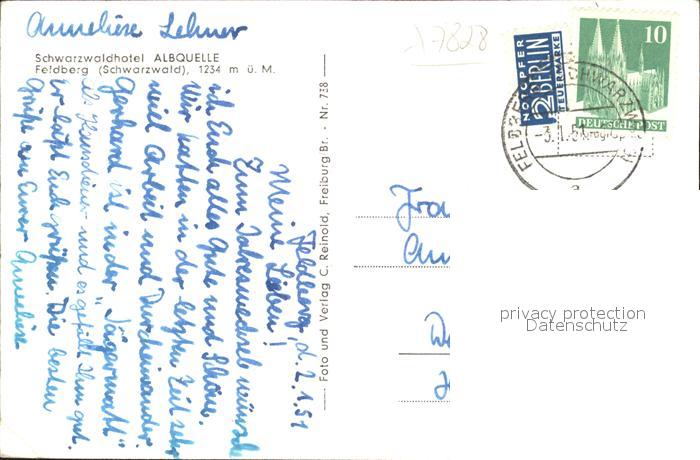 Anneliese Lehner
Schwarzwaldhotel ALBQUELLE
Feldberg (Schwarzwald), 1234 m ü. M.
17828
NOTOPFER
2 BERLIN
STEUERMARKE
10
DEUTSCHE POST
SCHWARZW
-3.1.51
Feldberg, d. 2.1.51
Meine Lieben!
Zum Jahreswechsel wünsche
ich Euch alles Gute und Schöne.
Wir hatten in der letzten Zeit sehr
viel Arbeit und Durcheinander
Gerhard ist in der "Jägermatt"
als Hausdiener und es gefällt ihm gut.
er läßt Euch grüßen. Die besten
Grüße von Eurer Anneliese
Foto und Verlag C. Reinold, Freiburg Br. - Nr. 738
Frau
An
privacy protection
Datenschutz